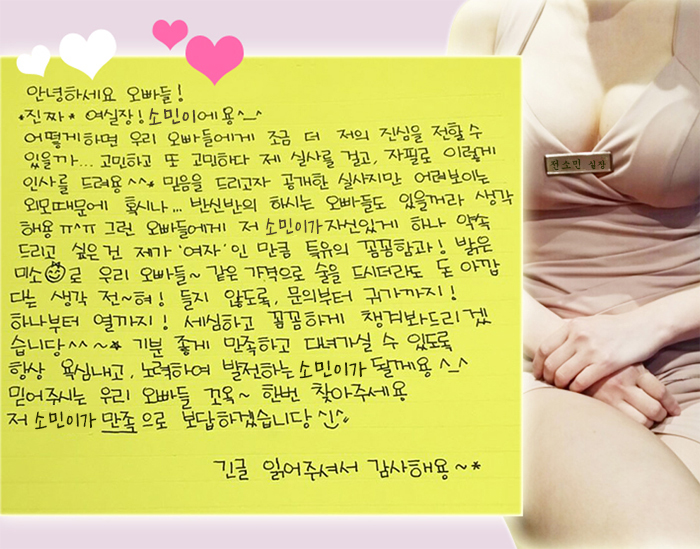 안녕하세요 오빠들!
*진짜* 여실장! 소민이에용^-^
어떻게 하면 우리 오빠들에게 조금 더 저의 진심을 전할 수
있을까... 고민하고 또 고민하다 제 실사를 걸고, 자필로 이렇게
인사를 드려용^^* 믿음을 드리고자 공개한 실사지만 어려보이는
외모때문에 혹시나... 반신반의 하시는 오빠들도 있을꺼라 생각
해용 ㅠ^ㅠ 그런 오빠들에게 저 소민이가 자신있게 하나 약속
드리고 싶은건 제가 '여자'인 만큼 특유의 꼼꼼함과! 밝은
미소로 우리 오빠들~ 같은 가격으로 술을 드시더라도 돈 아깝
다는 생각 전~혀! 들지 않도록, 문의부터 귀가까지!
하나부터 열까지! 세심하고 꼼꼼하게 챙겨봐드리겠
습니당^^~* 기분 좋게 만족하고 대녀가실 수 있도록
항상 욕심내고, 노력하여 발전하는 소민이가 될께용^-^
믿어주시는 우리 오빠들 꼬옥~ 한번 찾아주세용
저 소민이가 만족으로 보답하겠습니당
긴글 읽어주셔서 감사해용~*
전소민 실장